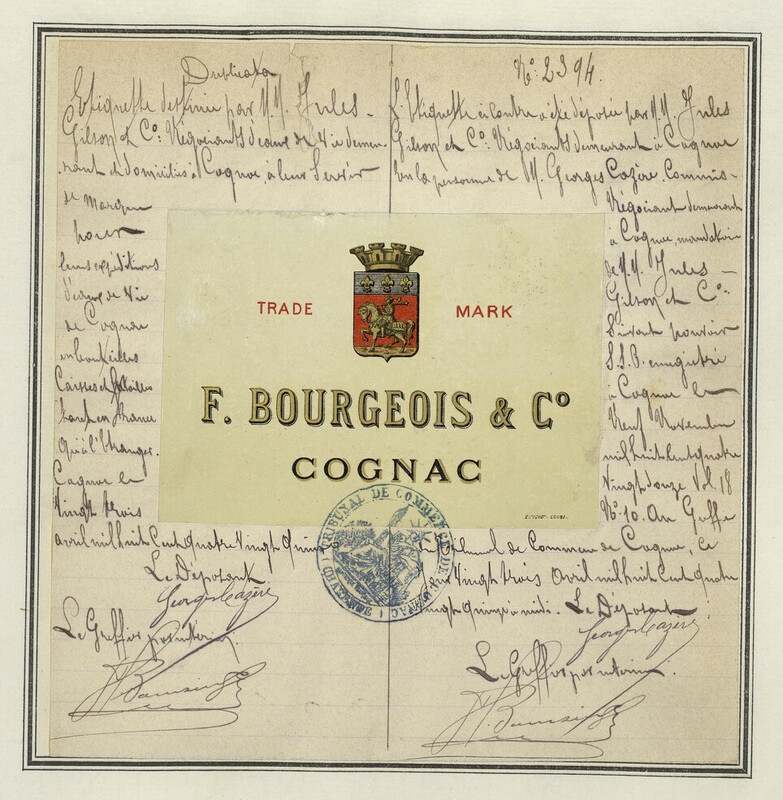 Duplicata
Etiquette destinée par M.M. Jules
Gilson et Cº: Négociants d'eaux de Vie demeu-
rant et domiciliés à Cognac, à leur Servir
de marque
pour
leurs expéditions
d'eaux de Vie
de Cognac
en bouteilles
Caisses et
tant en France
qu'à l'Etranger.
Cognac le
Vingt trois
avril mil huit Cent quatre Vingt quinze
Le Déposant
Georges Cazère
Le Greffier
Nº: 2394.
L'Etiquette ci contre a été déposée par M.M. Jules
Gilson et Cº: Négociants demeurant à Cognac
en la personne de M. Georges Cazère, Commis-
Négociant demeurant
à Cognac, mandataire
de M.M. Jules
Gilson et Cº:
Suivant pouvoir
S.S.P. enregistré
à Cognac le
Neuf Novembre
mil huit Cent quatre
Vingt douze Vol. 18
Nº 10. Au Greffe
du Tribunal de Commerce de Cognac, ce
jour Vingt trois Avril mil huit Cent quatre
Vingt quinze à midi. Le Déposant
Georges Cazère
Le Greffier
TRADE MARK
F. BOURGEOIS & Cº
COGNAC
TRIBUNAL DE COMMERCE DE COGNAC
(CHARENTE)